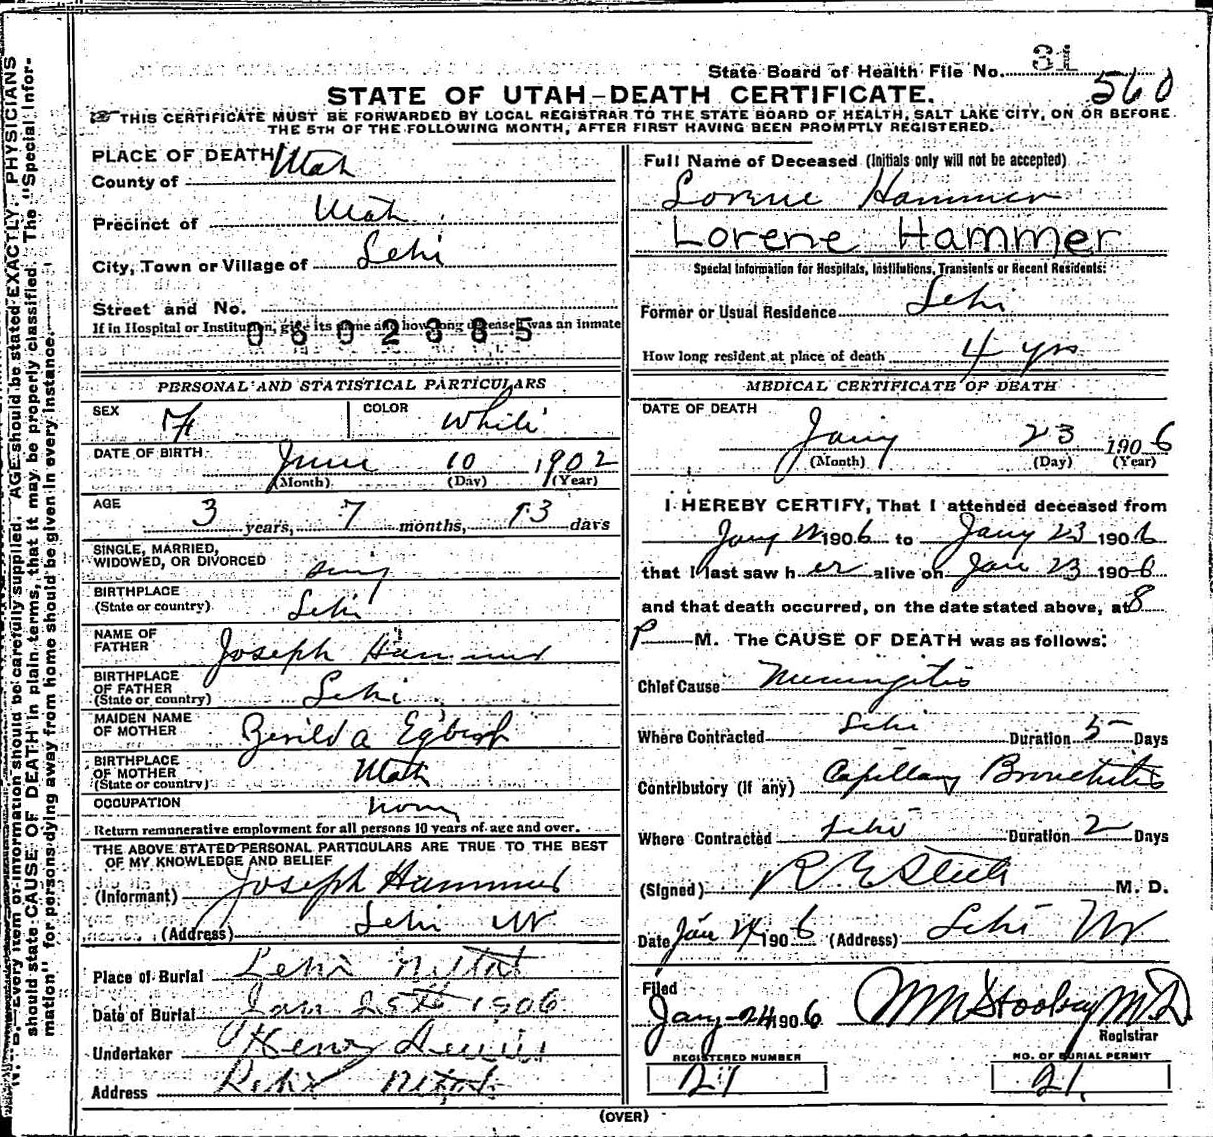 State Board of Health File No. 31
560
STATE OF UTAH—DEATH CERTIFICATE.
THIS CERTIFICATE MUST BE FORWARDED BY LOCAL REGISTRAR TO THE STATE BOARD OF HEALTH, SALT LAKE CITY, ON OR BEFORE
THE 5TH OF THE FOLLOWING MONTH, AFTER FIRST HAVING BEEN PROMPTLY REGISTERED.
PLACE OF DEATH
County of Utah
Precinct of Utah
City, Town or Village of Lehi
Street and No.
If in Hospital or Institution, give its name and how long deceased was an inmate
0602385
PERSONAL AND STATISTICAL PARTICULARS
SEX F COLOR White
DATE OF BIRTH June 10 1902
(Month) (Day) (Year)
AGE
3 years, 7 months, 13 days
SINGLE, MARRIED,
WIDOWED, OR DIVORCED
BIRTHPLACE
(State or country) Lehi
NAME OF
FATHER Joseph Hammer
BIRTHPLACE
OF FATHER
(State or country) Lehi
MAIDEN NAME
OF MOTHER
BIRTHPLACE
OF MOTHER
(State or country) Utah
OCCUPATION
Return remunerative employment for all persons 10 years of age and over.
THE ABOVE STATED PERSONAL PARTICULARS ARE TRUE TO THE BEST
OF MY KNOWLEDGE AND BELIEF
(Informant) Joseph Hammer
(Address) Lehi Ut
Place of Burial Lehi Utah
Date of Burial Jan 25th 1906
Undertaker Henry
Address Lehi Utah
Full Name of Deceased (Initials only will not be accepted)
Lorene Hammer
Lorene Hammer
Special Information for Hospitals, Institutions, Transients or Recent Residents:
Former or Usual Residence Lehi
How long resident at place of death 4 yrs
MEDICAL CERTIFICATE OF DEATH
DATE OF DEATH
Jany 23 1906
(Month) (Day) (Year)
I HEREBY CERTIFY, That I attended deceased from
Jany 1906 to Jany 23 1906
that I last saw her alive on Jan 23 1906
and that death occurred, on the date stated above, at 8
P M. The CAUSE OF DEATH was as follows:
Chief Cause Meningitis
Where Contracted Lehi Duration 5 Days
Contributory (if any) Capillary Bronchitis
Where Contracted Lehi Duration 2 Days
(Signed) R E Steele M. D.
Date Jan 24 1906 (Address) Lehi Ut
Filed
Jany 24 1906
M.D.
Registrar
REGISTERED NUMBER NO. OF BURIAL PERMIT
21 21
(OVER)
N. B.—Every item of information should be carefully supplied. AGE should be stated EXACTLY. PHYSICIANS
should state CAUSE OF DEATH in plain terms, that it may be properly classified. The "Special Infor-
mation" for persons dying away from home should be given in every instance.